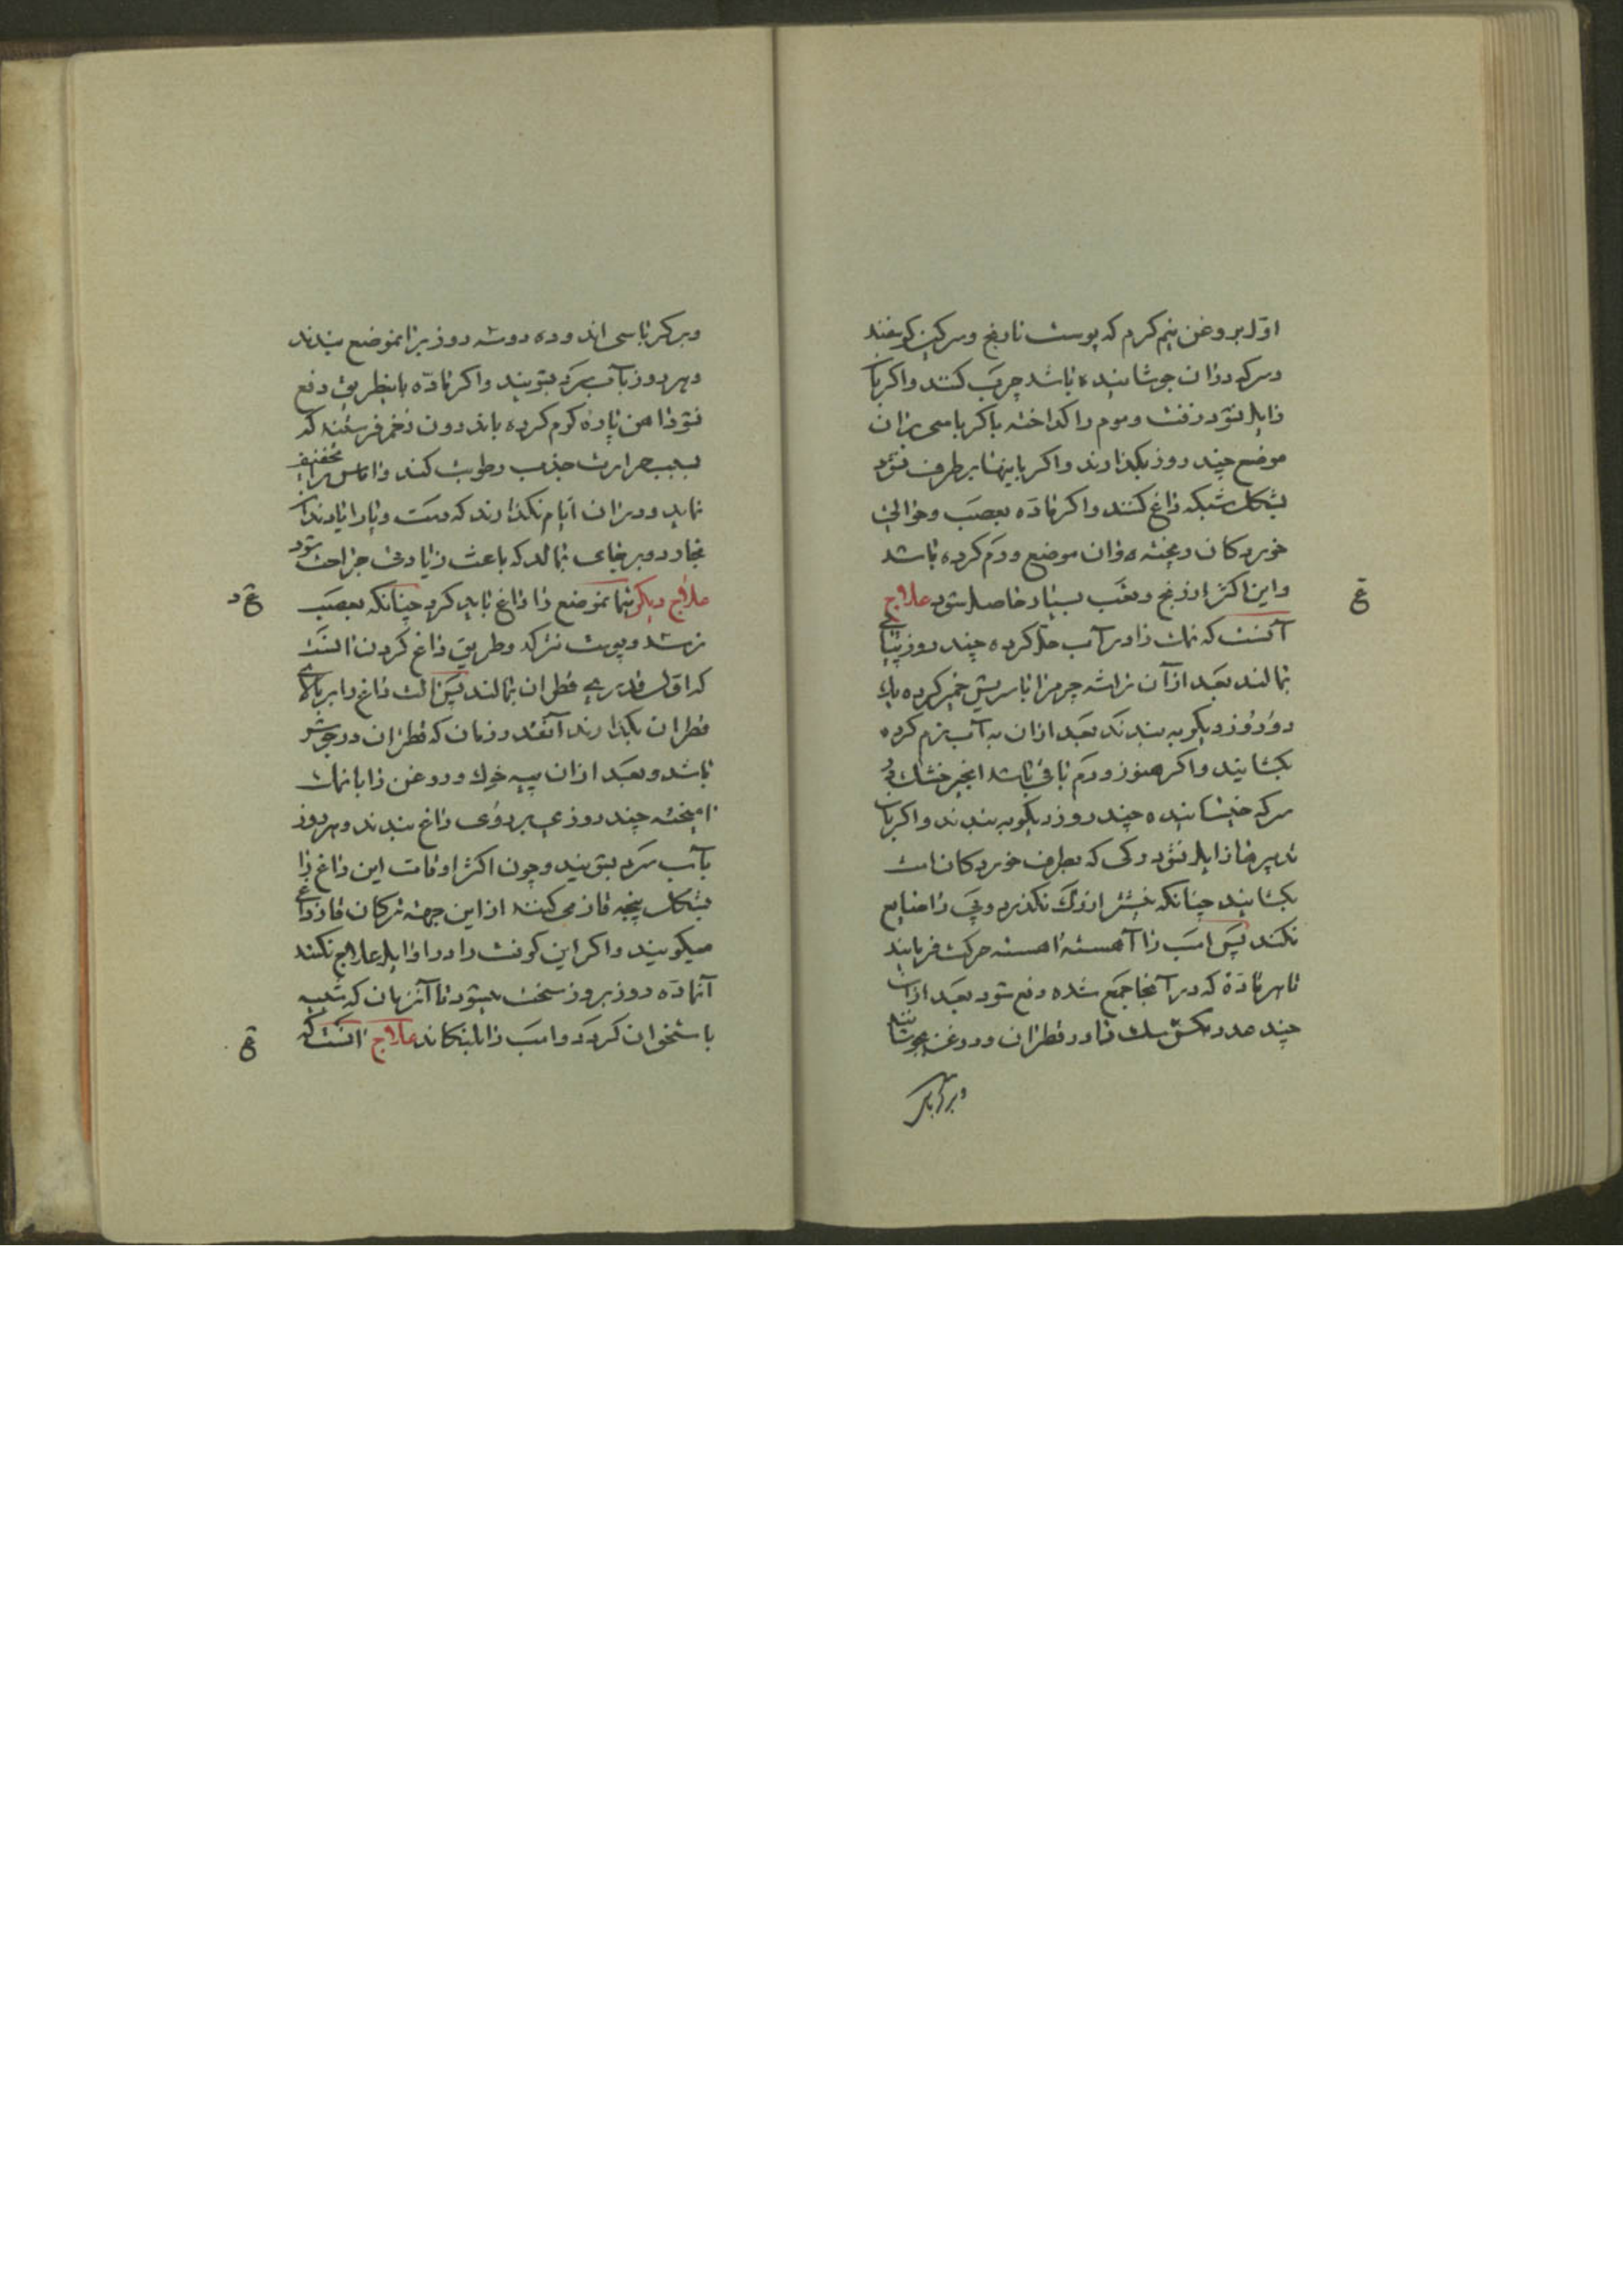 اوّل بروغن نیم کرم که پوست نارنج و سرکین کوسفند
و سرکه دران جوشانیده باشد چرب کنند و اکر با
زایل نشود زفت و موم را کداخته با کرباسی بران
موضع چند روز بکذارند و اکر باینها برطرف نشود
بشکل شبکه داغ کنند و اکر ماده بعصب و حوالی
خوردکان ریخته و آن موضع ورم کرده باشد
و این اکثر از رنج و تعب بسیار حاصل شود علاج
آنست که نمک را در آب حل کرده چند روز
بمالند بعد از آن تراشه چرم را با سریش خمیر کرده یک
دو روز دیکر به بندند بعد ازان به آب نرم کرده
بکشایند و اکر هنوز ورم باقی باشد انجیر خشک در
سرکه خیسانیده چند روز دیکر به بندند و اکر با
تدبیرها زایل نشود رکی که بطرف خوردکانست
بکشایند چنانکه نیشتر از رک نکذرد و پی را ضایع
نکند پس اسب را آهسته اهسته حرکت فرمایند
تا هر مادّة که در آنجا جمع شده دفع شود بعد ازان
چند عدد سک را در قطران و روغن جوشانیده
و بر کرباسی
و بر کرباسی اندوده دو سه روز بر انموضع بندند
و هر روز بآب سرد بشویند و اکر مادّه باینطریق دفع
نشود آهن پاره کرم کرده باندرون زخم فرستند که
بسبب حرارت جذب رطوبت کند و اماس را تخفیف
نماید و دران ایام نکذارند که دست و پا را
بخارد و بر جای بمالد که باعث زیادتی جراحت شود
علاج دیکر انموضع را داغ باید کرد چنانکه بعصب
نرسد و پوست نترکد و طریق داغ کردن انست
که اوّل قدری قطران بمالند پس الت داغ را بر بالای
قطران بکذارند آنقدر زمان که قطران در جوش
باشد و بعد ازان پیه خوک و روغن را با نمک
امیخته چند روزی بر روی داغ بندند و هر روز
بآب سرد بشویند و چون اکثر اوقات این داغ را
بشکل پنجه قاز می کنند از این جهة ترکان قاز داغی
میکویند و اکر این کوفت را در اوایل علاج نکنند
آنماده روز بروز سخت میشود تا آنزمان که شبیه
باستخوان کردد و اسب را بلنکاند علاج انست که